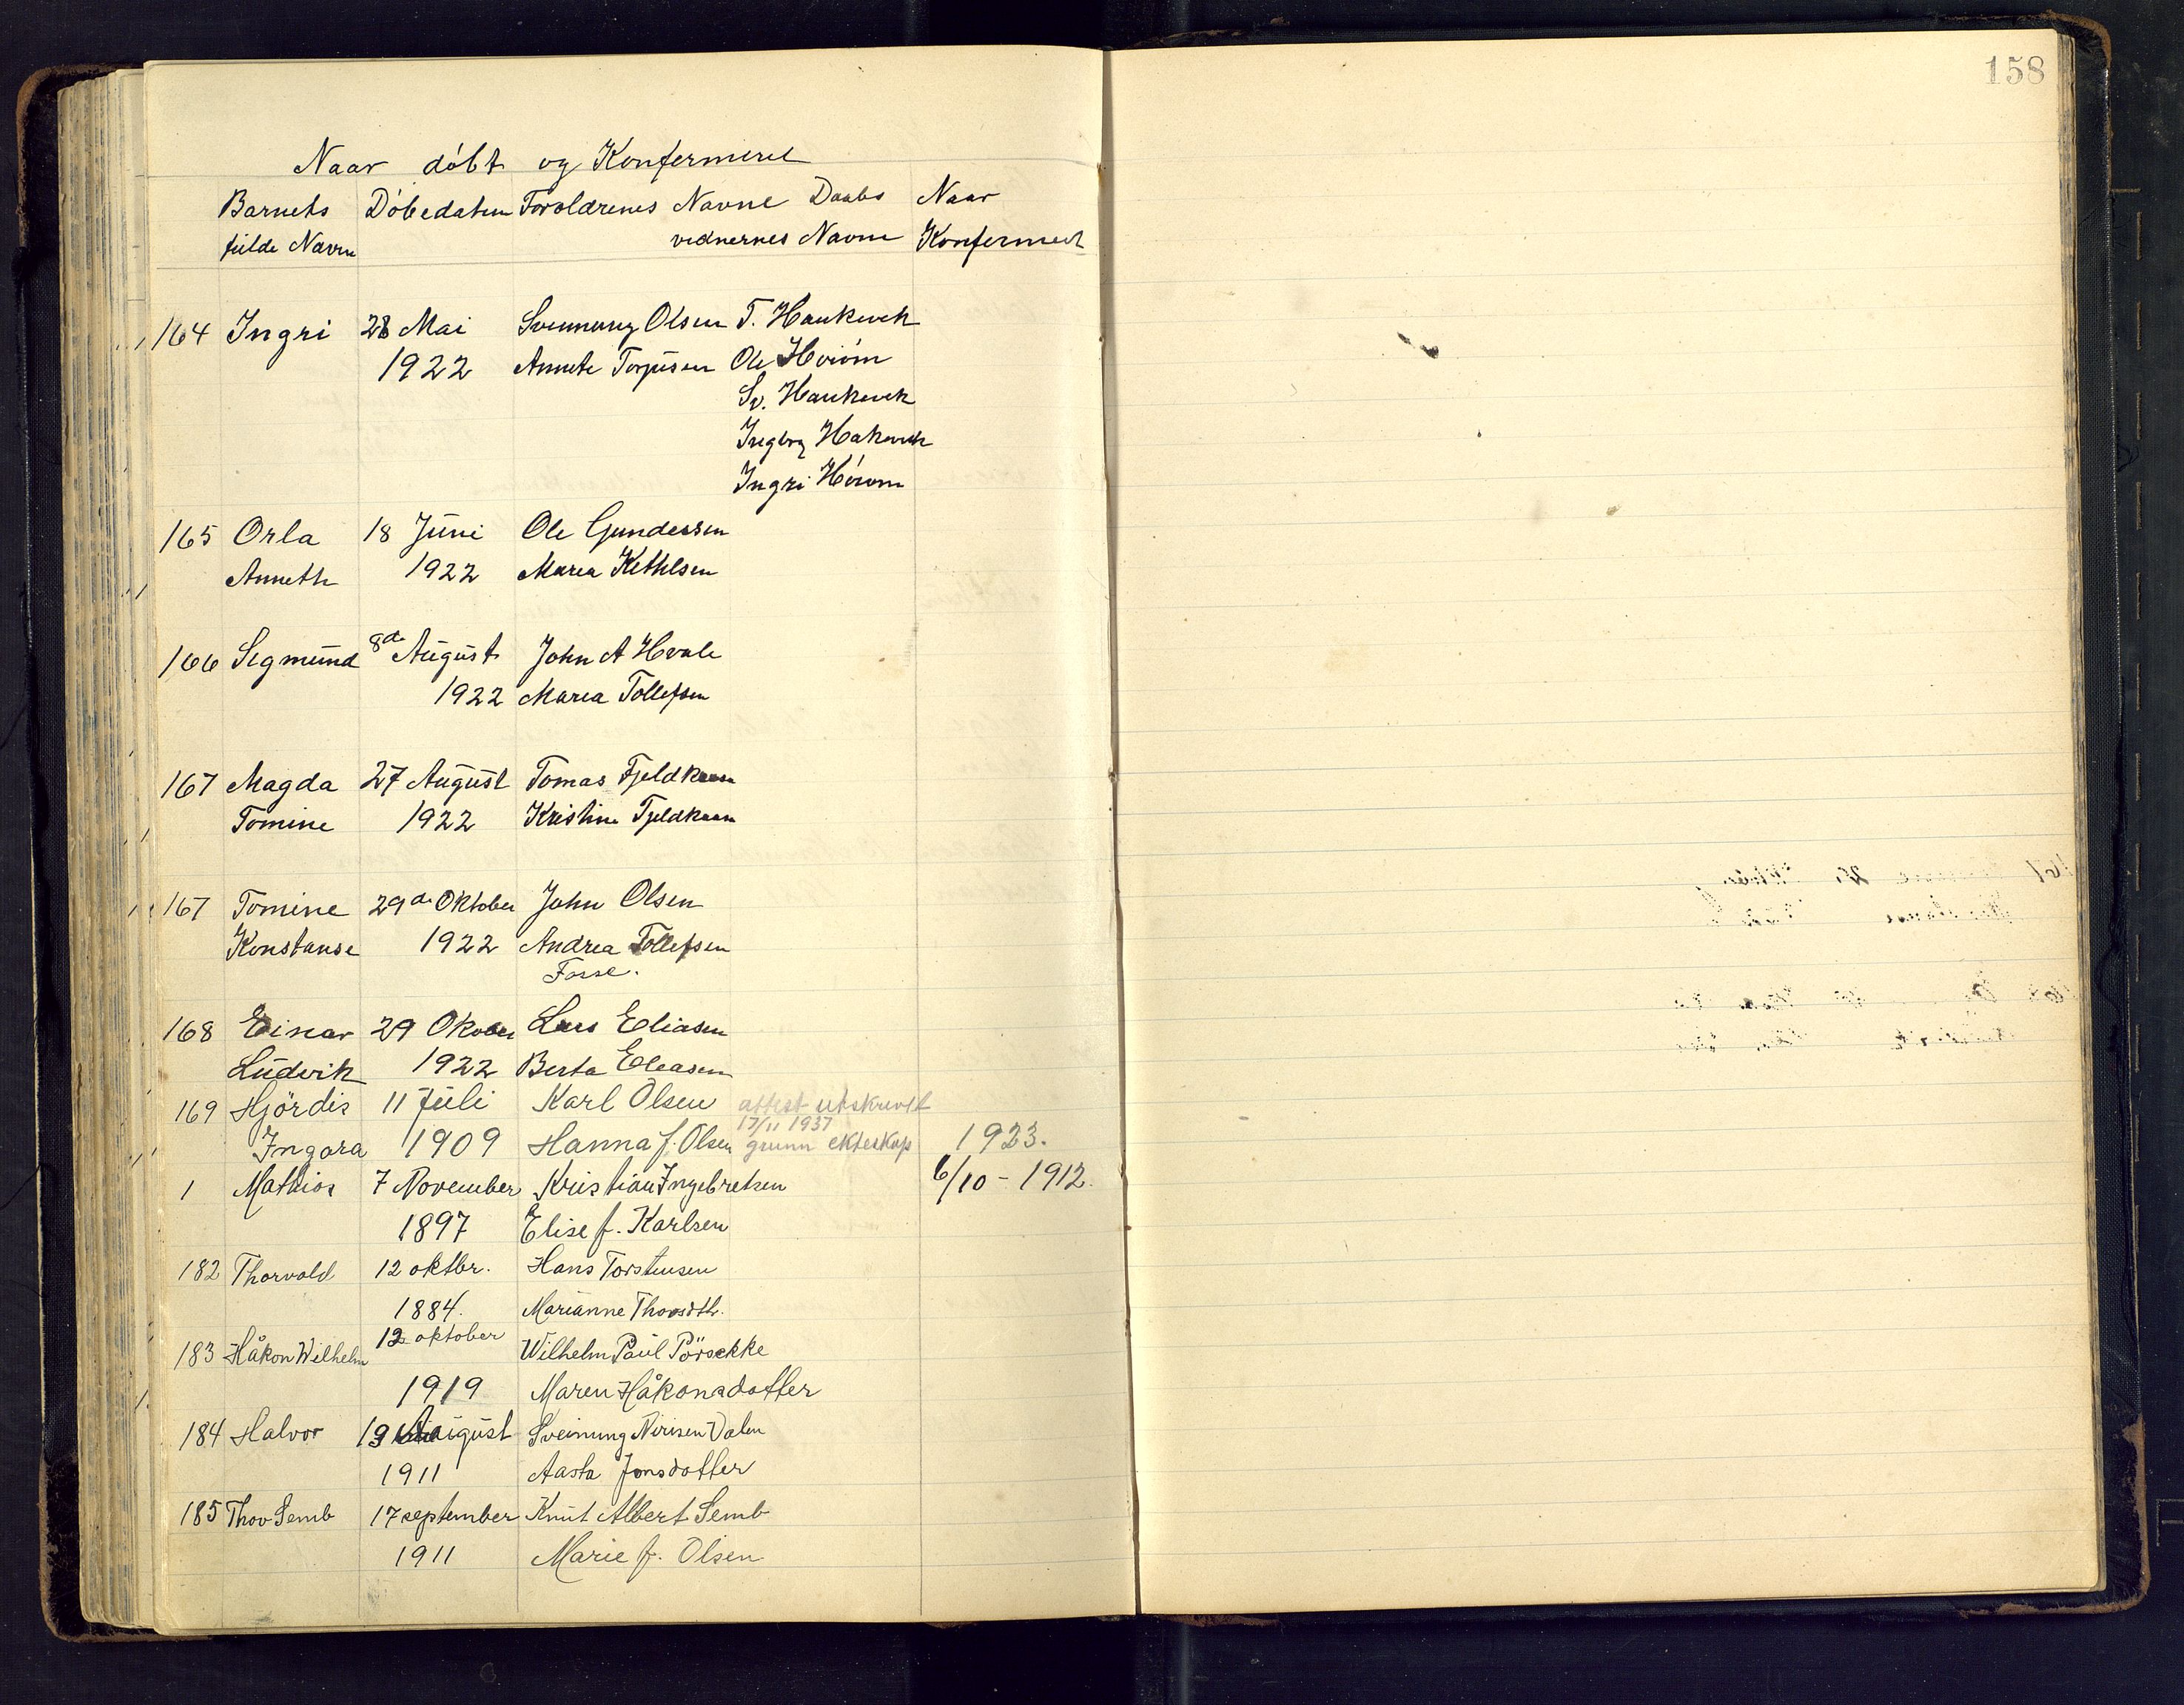 158
Naar döbt og Konfermeret
Barnets Döbedatum Foroldrenes Navne Daabs Naar
fulde Navn vednernes Navne Konfermert
164 Ingri 28 Mai Svennung Olsen T. Haukerek
1922 Annete Torjusen Ole
Sv. Haukerek
Ingbrg
Ingri
165 Orla 18 Juni Ole Gundersen
Anneth 1922 Marea Kethlsen
166 Segmund 8de August John A Hvale
1922 Marea Tollefsen
167 Magda 27 August Tomas Fjeldkaasa
Tomine 1922 Kristine Fjeldkaasa
167 Tomine 29de Oktober John Olsen
Konstanse 1922 Andrea Tollefsen
Fosse.
168 Einar 29 Okober Lars Eliasen
Ludvik 1922 Berta Eleasen
169 Hjördis 11 Juli Karl Olsen attest utskrevet
17/11 1937
Ingora 1909 Hanna f. Olsen grunn ekteskap 1923.
1 Mathias 7 November Kristian Ingebretsen 6/10 - 1912.
1897 Elise f. Karlsen
182 Thorvald 12 oktbr. Hans Torstensen
1884. Marianne Thorsdtr.
183 Håkon Wilhelm 12 oktober Wilhelm Paul Pörschke
1919 Maren Håkonsdotter
184 Halvor 19 August Sveinung Nirisen Dalen
1911 Aasta Jonsdotter
185 Thov Semb 17 september Knut Albert Semb
1911 Marie f. Olsen